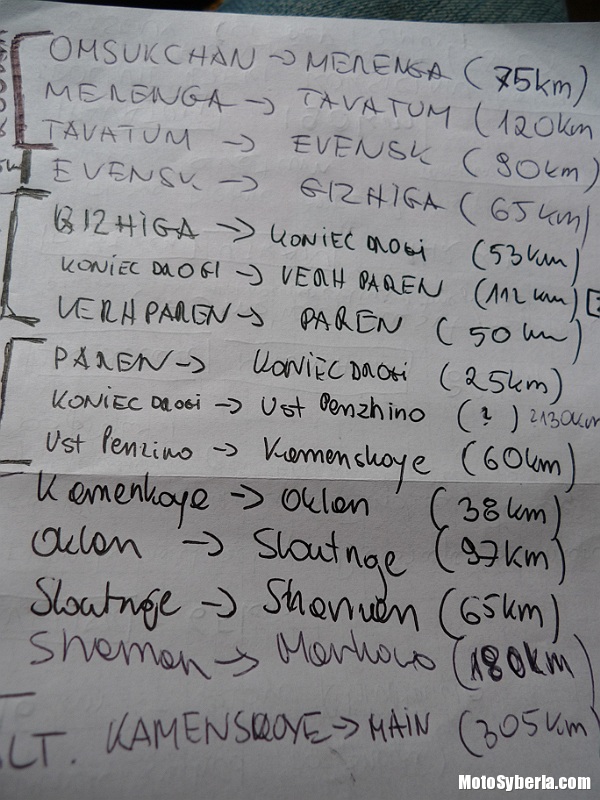 OMSUKCHAN → MERENGA (75km)
MERENGA → TAVATUM (120km
TAVATUM → EVENSK (90km)
EVENSK → GIZHIGA (65km)
GIZHIGA → KONIEC DROGI (53km)
KONIEC DROGI → VERH PAREN (112km)
VERH PAREN → PAREN (50km)
PAREN → KONIEC DROGI (25km)
KONIEC DROGI → Ust Penzhino (?) ~130km
Ust Penzino → Kamenskoye (60km)
Kamenkoye → Oklan (38km)
Oklan → Sloutnge (97km)
Sloutnge → Shaman (65km)
Shaman → Markovo (180km)
LT. KAMENSKOYE → MAIN (305km)
MotoSyberia.com